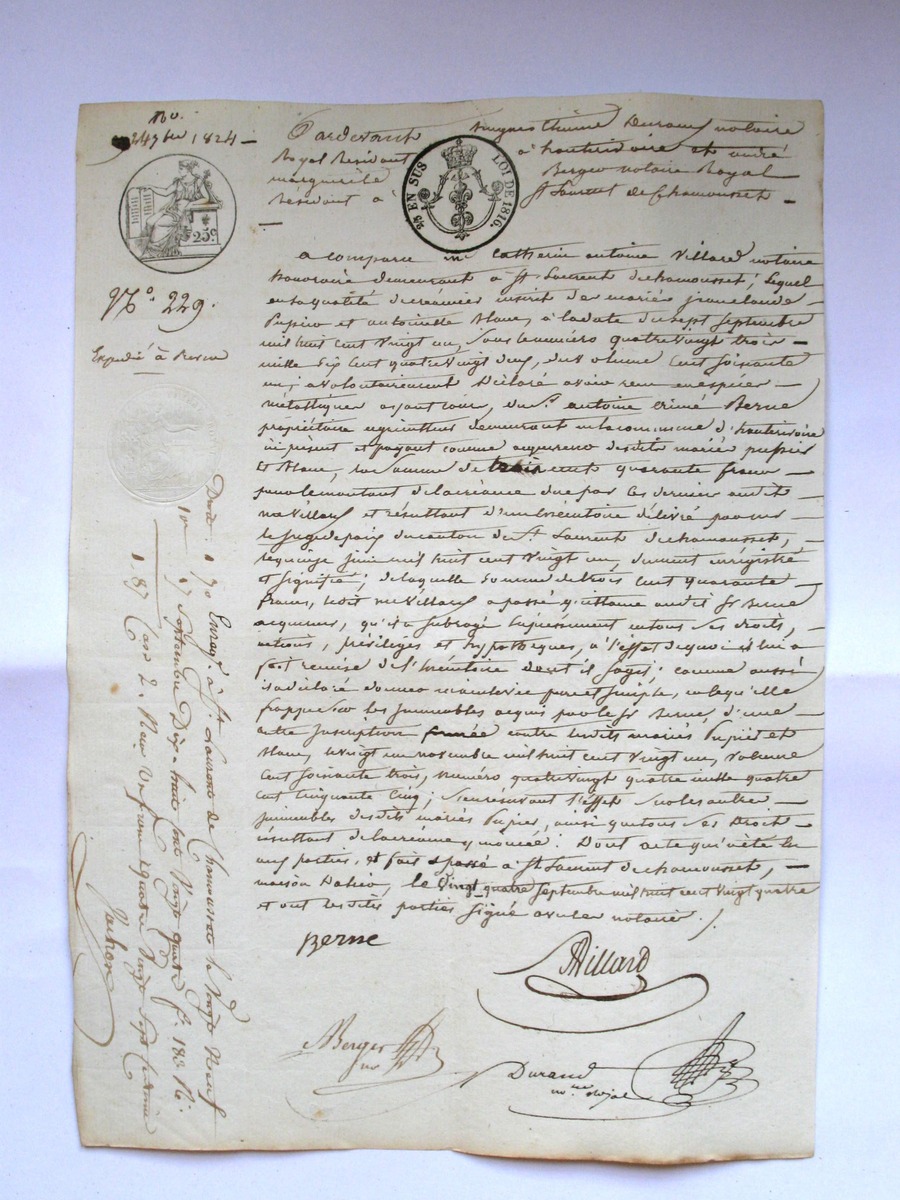 No.
24 7bre 1824
Pardevant hugues thienne Durand notaire
Royal Residant à hauterivoire et andré
marguerite Berger notaire Royal
Résidant à St Laurent de Chamousset
2/5 EN SUS LOI DE 1816.
25 c.
No. 229.
Expédié à Berne
a comparu me Catherin antoine Villard notaire
honoraire demeurant à St Laurent de chamousset; lequel
en sa qualité de créancier inscrit des mariés jeanclaude
Pupier et antoinette Blanc, à la date du sept septembre
mil huit cent vingt un, sous les numéros quatre vingt trois
mille six cent quatre vingt deux, du volume cent soixante
un; a volontairement Déclaré avoir reçu en espèces
métalliques ayant cour, du Sr. antoine Berne
propriétaire agriculteur demeurant en la commune d'hauterivoire
ici présent et payant comme acquereur desdits mariés puppier
et Blanc, la somme de trois cent quarante francs
pour le montant de la créance due par ces dernier audit
me Villard et résultant d'un exécutoire délivré par mr
le juge de paix du canton de St Laurent de chamousset,
le quinze juin mil huit cent vingt un, dument enrégistré
et signifié; de laquelle somme de trois cent quarante
francs, ledit me Villard a passé quittance audit Sr Berne
acquereur, qu'il a subrogé expressement en tous ses droits,
actions, priviléges et hypothèques, à l'effet de quoi il lui a
fait remise de l'exécutoire dont il s'agit; comme aussi
il a déclaré donner mainlevée pure et simple, en ce qu'elle
frappe sur les immeubles acquis par le Sr Berne, d'une
autre inscription formée contre lesdits mariés Pupier et
Blanc, le vingt un novembre mil huit cent vingt un, volume
cent soixante trois, numéro quatre vingt quatre mille quatre
cent cinquante cinq; s'en réservant l'effet sur les autres
immeubles desdits mariés Pupier, ainsi que tous ses Droits
résultant de la créance y énoncée. Dont acte qu'ont requis
les parties, et fait et passé à St Laurent de chamousset,
maison Dahier, le vingt quatre septembre mil huit cent vingt quatre
et ont lesdites parties signé avec les notaires.
Berne
Villard
Berger
nre
Durand
nre royal
Enreg.é à St. Laurent de Chamousset le Vingt Neuf
Septembre Dix-huit cent Vingt quatre f. 183 R.
Case 2. Reçu un franc quatre Vingt Sept centimes
Droit 1 70
10e 17
1. 87